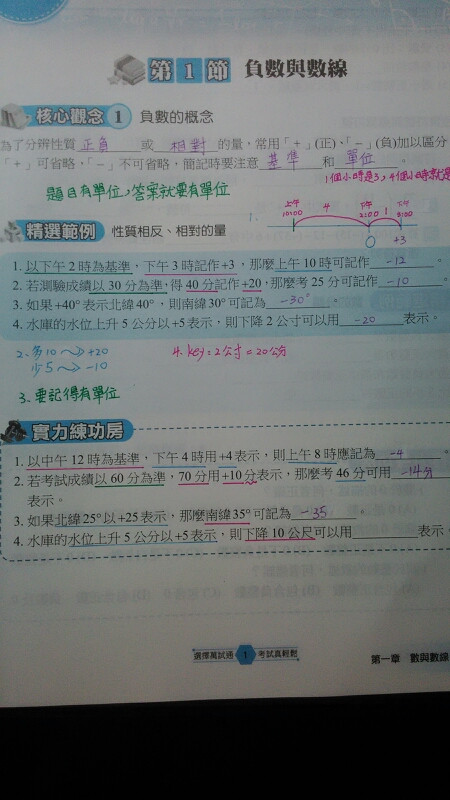 第1節 負數與數線
核心觀念 1 負數的概念
為了分辨性質 正負 或 相對 的量,常用「+」(正)、「−」(負)加以區分
「+」可省略,「−」不可省略,簡記時要注意 基準 和 單位 。
題目有單位,答案就要有單位
1個小時是3,4個小時就是
1. 上午10:00 4 下午2:00 1 下午3:00
0 +3
精選範例 性質相反、相對的量
1. 以下午2時為基準,下午3時記作+3,那麼上午10時可記作 -12 。
2. 若測驗成績以30分為準,得40分記作+20,那麼考25分可記作 -10 。
3. 如果+40°表示北緯40°,則南緯30°可記為 -30° 。
4. 水庫的水位上升5公分以+5表示,則下降2公寸可以用 -20 表示。
2. 多10→+20
少5→-10
4. key=2公寸=20公分
3. 要記得有單位
實力練功房
1. 以中午12時為基準,下午4時用+4表示,則上午8時應記為 -4 。
2. 若考試成績以60分為準,70分用+10分表示,那麼考46分可用 -14分
表示。
3. 如果北緯25°以+25表示,那麼南緯35°可記為 -35 。
4. 水庫的水位上升5公分以+5表示,則下降10公尺可以用 表示。
選擇萬試通 1 考試真輕鬆
第一章 數與數線